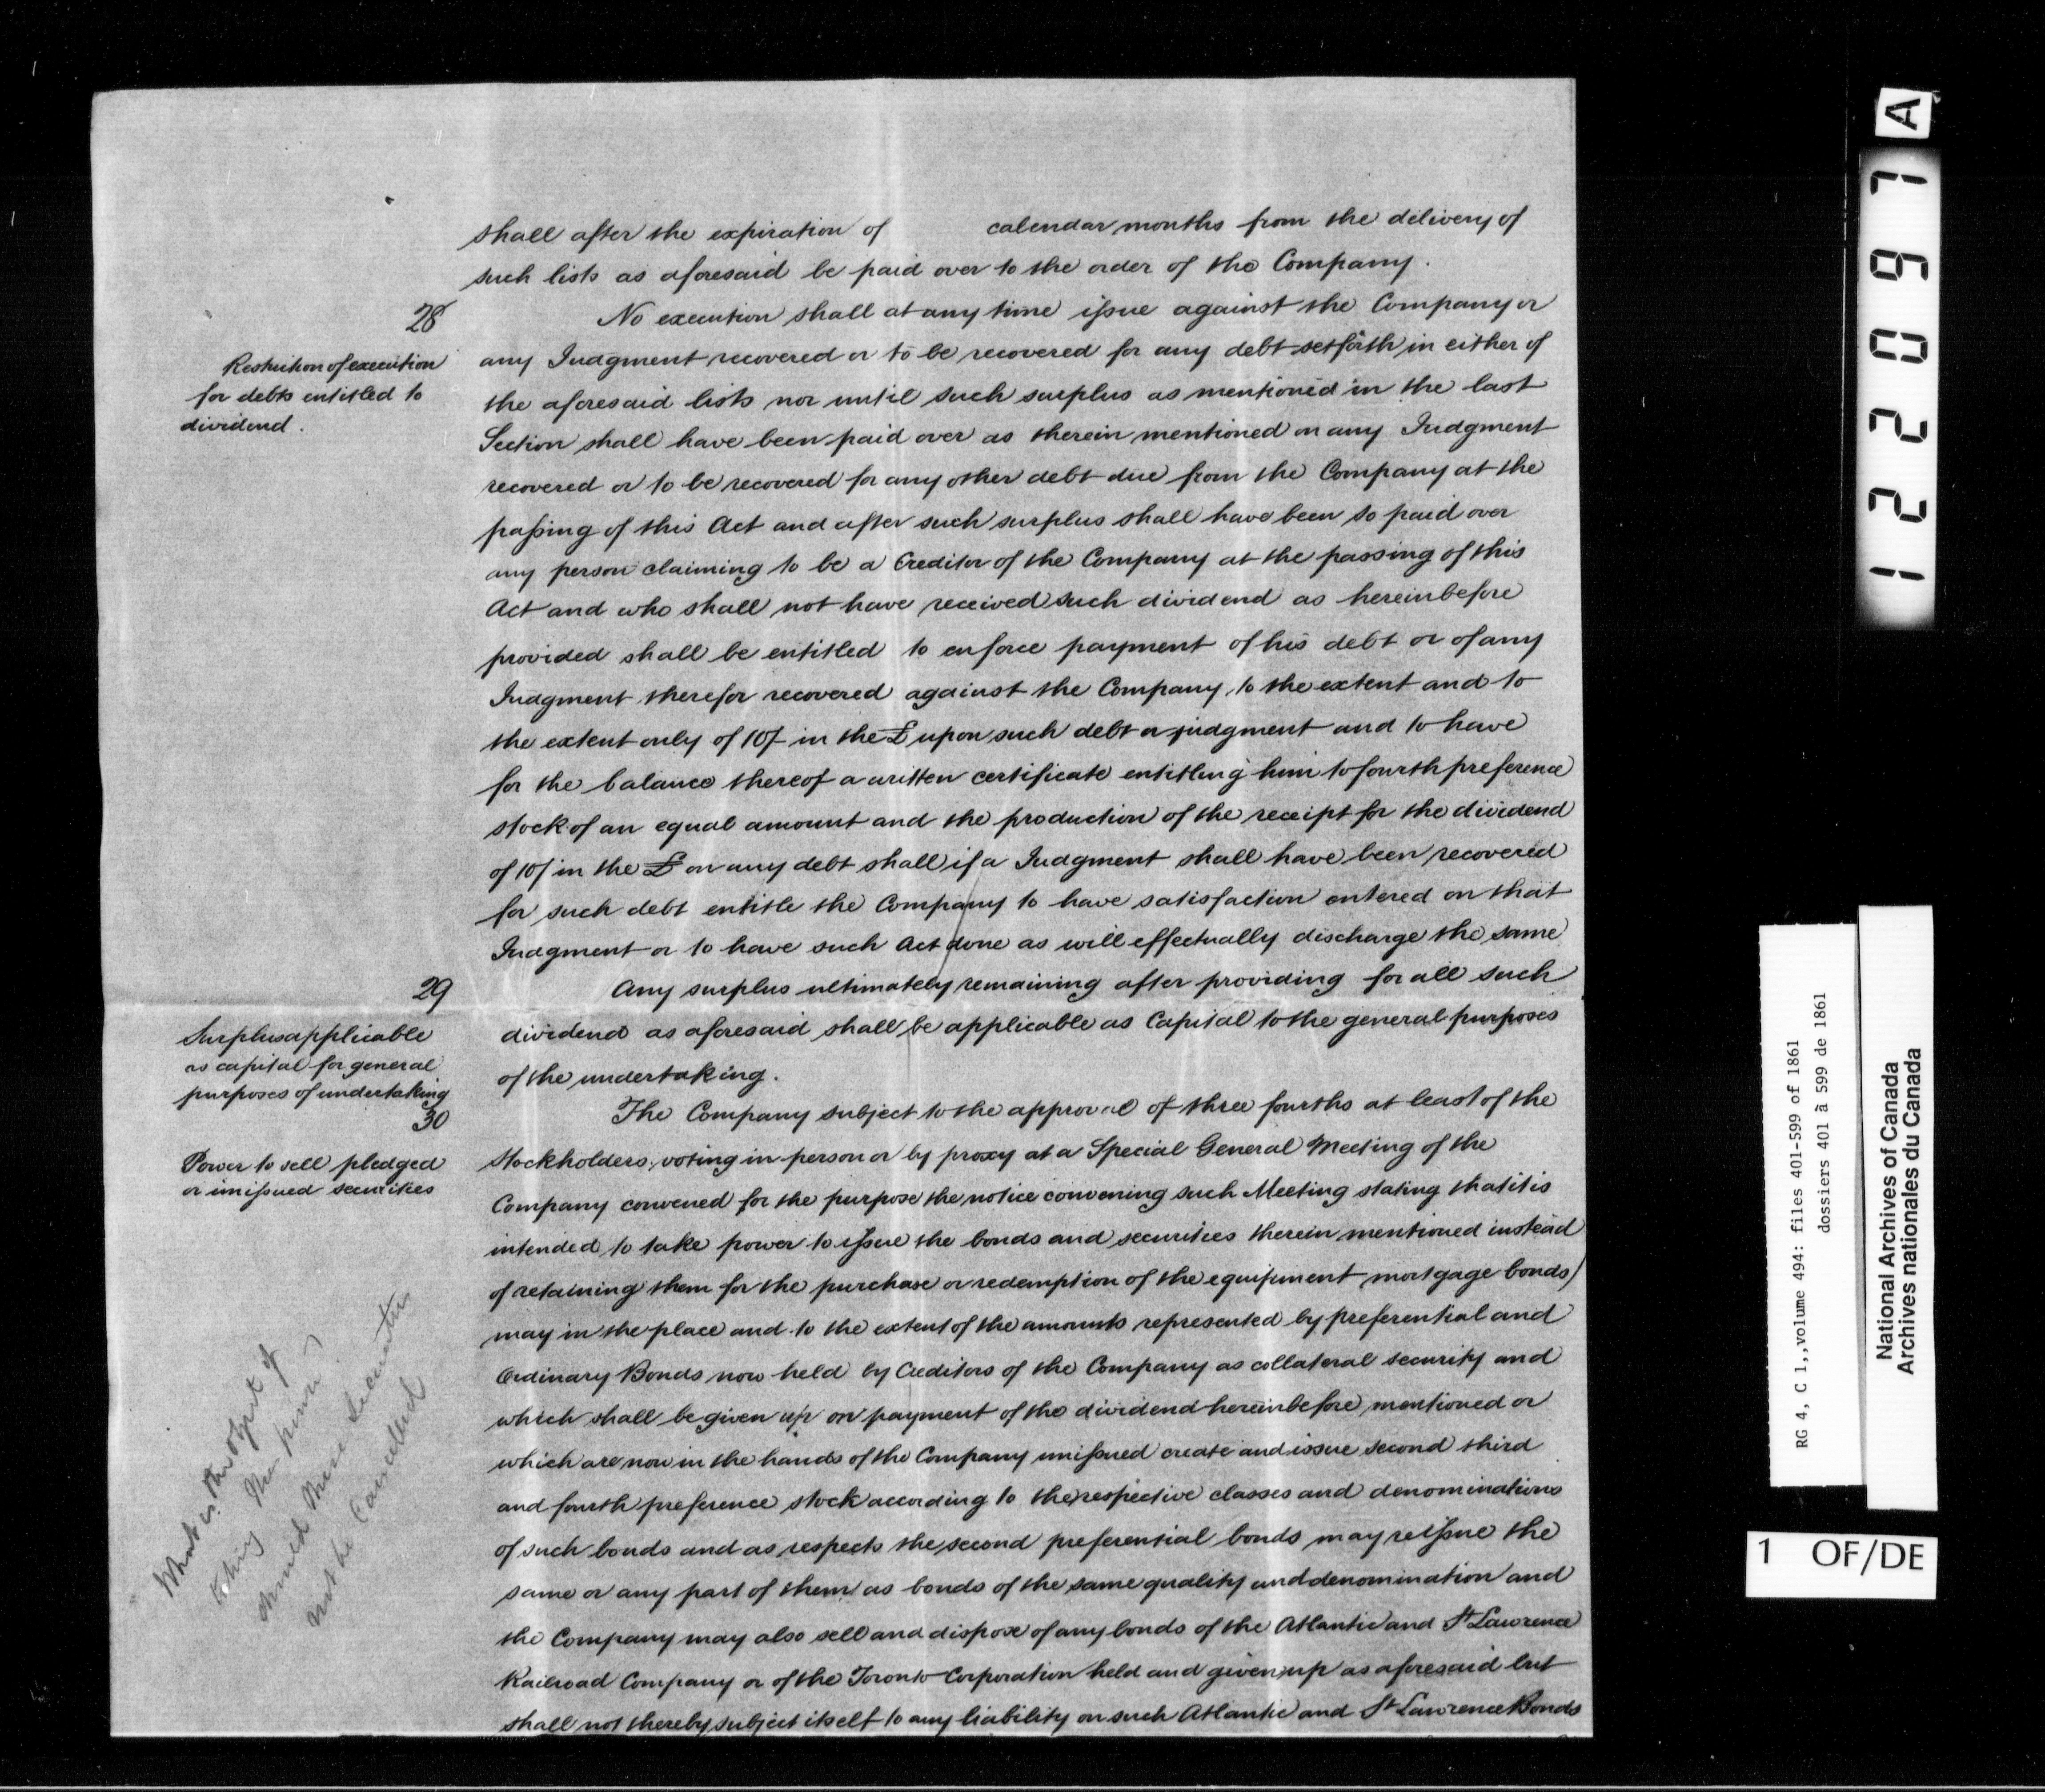 shall after the expiration of calendar months from the delivery of
such lists as aforesaid be paid over to the order of the Company.
28
No execution shall at any time issue against the Company or
Restriction of execution
for debts entitled to
dividend.
any Judgment recovered or to be recovered for any debt set forth in either of
the aforesaid lists nor until such surplus as mentioned in the last
Section shall have been paid over as therein mentioned on any Judgment
recovered or to be recovered for any other debt due from the Company at the
passing of this Act and after such surplus shall have been so paid over
any person claiming to be a Creditor of the Company at the passing of this
Act and who shall not have received such dividend as hereinbefore
provided shall be entitled to enforce payment of his debt or of any
Judgment therefor recovered against the Company, to the extent and to
the extent only of 10/ in the £ upon such debt or judgment and to have
for the balance thereof a written certificate entitling him to fourth preference
stock of an equal amount and the production of the receipt for the dividend
of 10/ in the £ on any debt shall if a Judgment shall have been recovered
for such debt entitle the Company to have satisfaction entered on that
Judgment or to have such Act done as will effectually discharge the same
29
Any surplus ultimately remaining after providing for all such
Surplus applicable
as capital for general
purposes of undertaking
dividend as aforesaid shall be applicable as Capital to the general purposes
of the undertaking.
30
The Company subject to the approval of three fourths at least of the
Power to sell pledged
or unissued securities
Stockholders, voting in person or by proxy at a Special General Meeting of the
Company convened for the purpose the notice convening such Meeting stating that it is
intended to take power to issue the bonds and securities therein mentioned instead
of retaining them for the purchase or redemption of the equipment mortgage bonds)
may in the place and to the extent of the amounts represented by preferential and
Ordinary Bonds now held by Creditors of the Company as collateral security and
which shall be given up on payment of the dividend hereinbefore mentioned or
which are now in the hands of the Company unissued create and issue second third
and fourth preference stock according to the respective classes and denominations
of such bonds and as respects the second preferential bonds may reissue the
same or any part of them as bonds of the same quality and denomination and
the Company may also sell and dispose of any bonds of the Atlantic and St Lawrence
Railroad Company or of the Toronto Corporation held and given up as aforesaid but
shall not thereby subject itself to any liability on such Atlantic and St Lawrence Bonds
What is the object of
this
should these securities
not be Cancelled
122097
A
RG 4, C 1,,volume 494: files 401-599 of 1861
dossiers 401 à 599 de 1861
National Archives of Canada
Archives nationales du Canada
1 OF/DE